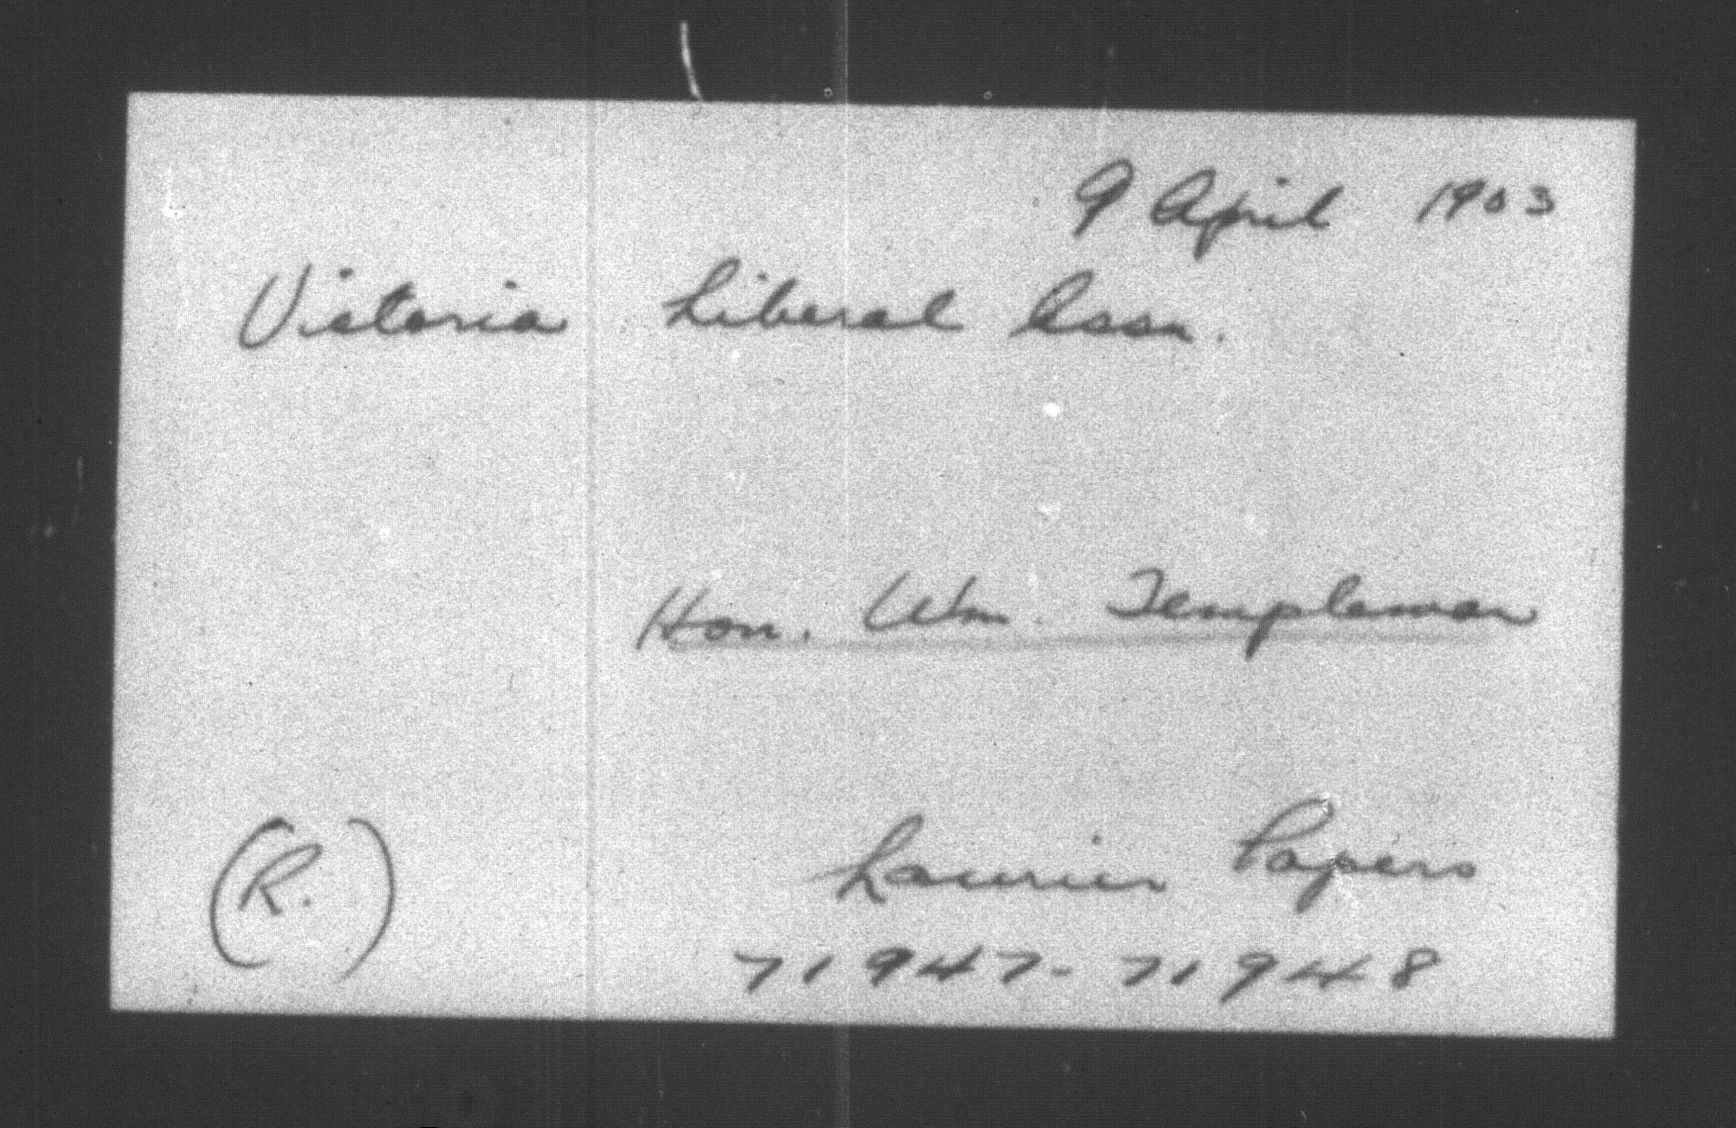 9 April 1903
Victoria Liberal Assn.
Hon. Wm. Templeman
(R.)
Laurier Papers
71947-71948